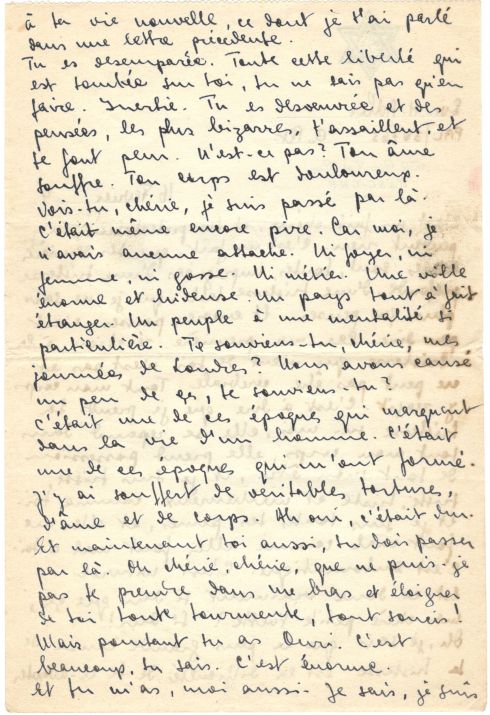 à ta vie nouvelle, ce dont je t'ai parlé
dans une lettre précédente.
Tu es desemparée. Toute cette liberté qui
est tombée sur toi, tu ne sais pas qu'en
faire. Inertie. Tu es desœuvrée et des
pensées, les plus bizarres, t'assaillent et
te font peur. N'est-ce pas? Ton âme
souffre. Ton corps est douloureux.
Vois-tu, chérie, je suis passé par là.
C'était même encore pire. Car moi, je
n'avais aucune attache. Ni foyer, ni
femme, ni gosse. Ni métier. Une ville
énorme et hideuse. Un pays tout à fait
étranger. Un peuple à une mentalité si
particulière. Te souviens-tu, chérie, mes
journées de Londres? Nous avons causé
un peu de ça, te souviens-tu?
C'était une de ces époques qui marquent
dans la vie d'un homme. C'était
une de ces époques qui m'ont formé.
J'y ai souffert de véritables tortures,
d'âme et de corps. Ah oui, c'était dur.
Et maintenant toi aussi, tu dois passer
par là. Oh chérie, chérie, que ne puis-je
pas te prendre dans me bras et éloigner
de toi toute tourmente, tout soucis!
Mais pourtant tu as Ouri. C'est
beaucoup, tu sais. C'est énorme.
Et tu m'as, moi aussi. Je sais, je suis